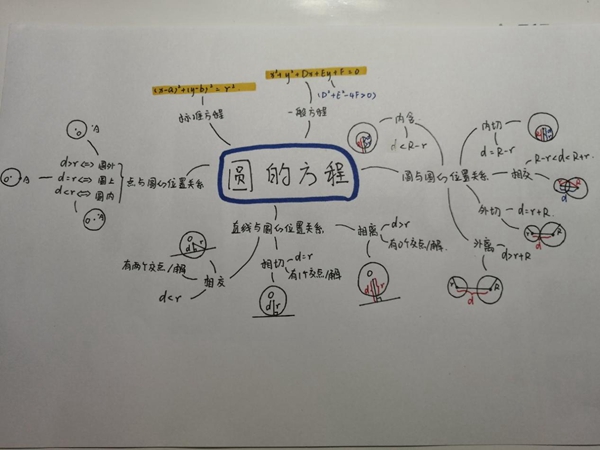 圆的方程
(x-a)²+(y-b)²=r²
标准方程
x²+y²+Dx+Ey+F=0
(D²+E²-4F>0)
一般方程
点与圆的位置关系
d>r⇔圆外
d=r⇔圆上
d<r⇔圆内
A
A
A
直线与圆的位置关系
相交
有两个交点/解
d<r
d r
相切
d=r
有1个交点/解
O
d r
相离
d>r
有0个交点/解
O
d r
圆与圆的位置关系
内含
d<R-r
内切
d=R-r
相交
R-r<d<R+r
d
外切
d=r+R
r R
d
外离
d>r+R
r R
d